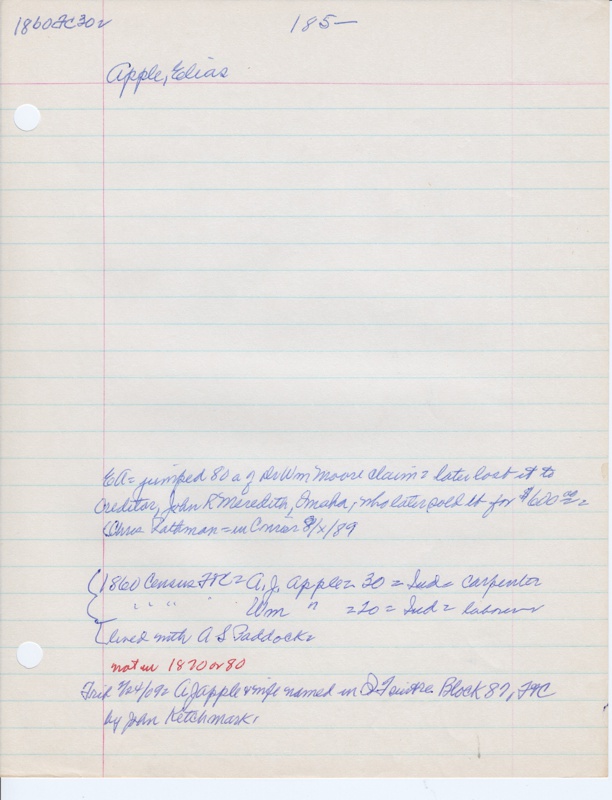 1860 FC 30
185—
Apple, Elias
EA = jumped 80 a of Dr Wm Moore claim = later lost it to
creditor, John R Meredith, Omaha, who later sold it for $600 00 =
(Chris Rathman = in Conser 8/X/89
1860 Census FtC = A. J. Apple = 30 = Ind = carpenter
" " " Wm " = 20 = Ind = laborer
lived with A S Paddock =
not in 1870 or 80
Trib 7/24/09 = A J Apple & wife named in Q T Block 87, FtC
by John Ketchmark,